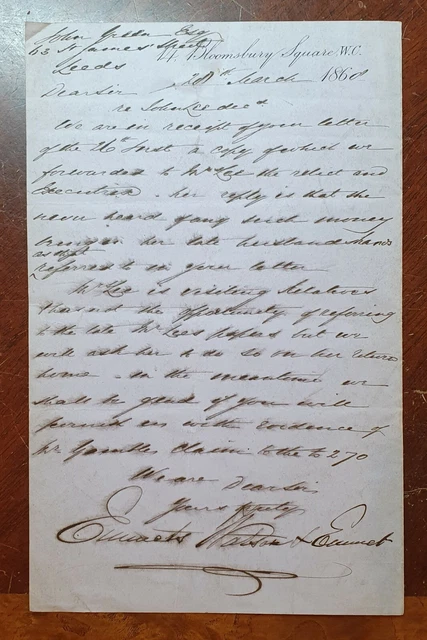 John Green Esq
63 St James' Street
Leeds
14, Bloomsbury Square W.C.
28th March 1868
Dear Sir
re John Lee decd
We are in receipt of your letter
of the 26th Inst a copy of which we
forwarded to Mrs Lee the relict and
Executrix. her reply is that she
never heard of any such money
being in her late husbands hands
as that
referred to in your letter
Mrs Lee is visiting Relatives
& has not the opportunity of referring
to the late Mr Lees papers but we
will ask her to do so on her return
home - in the meantime we
shall be glad if you will
furnish us with Evidence of
Mr Gambles claim to the £270
We are Dear Sir
Yours truly
Emmets Watson & Emmet